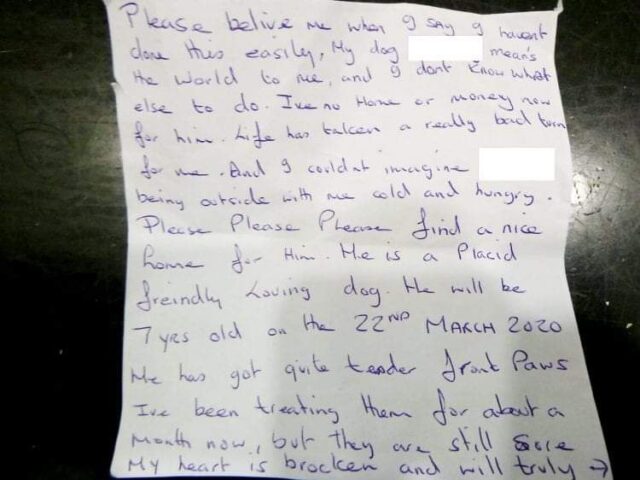 Please belive me when I say I havent
done this easily, My dog means
the world to me, and I dont know what
else to do. Ive no Home or money now
for him. Life has taken a really bad turn
for me. And I couldnt imagine
being outside with me cold and hungry.
Please Please Please find a nice
home for Him. He is a Placid
freindly Loving dog. He will be
7 yrs old on the 22ND MARCH 2020
He has got quite tender front Paws
Ive been treating them for about a
month now, but they are still sore
My heart is brocken and will truly →